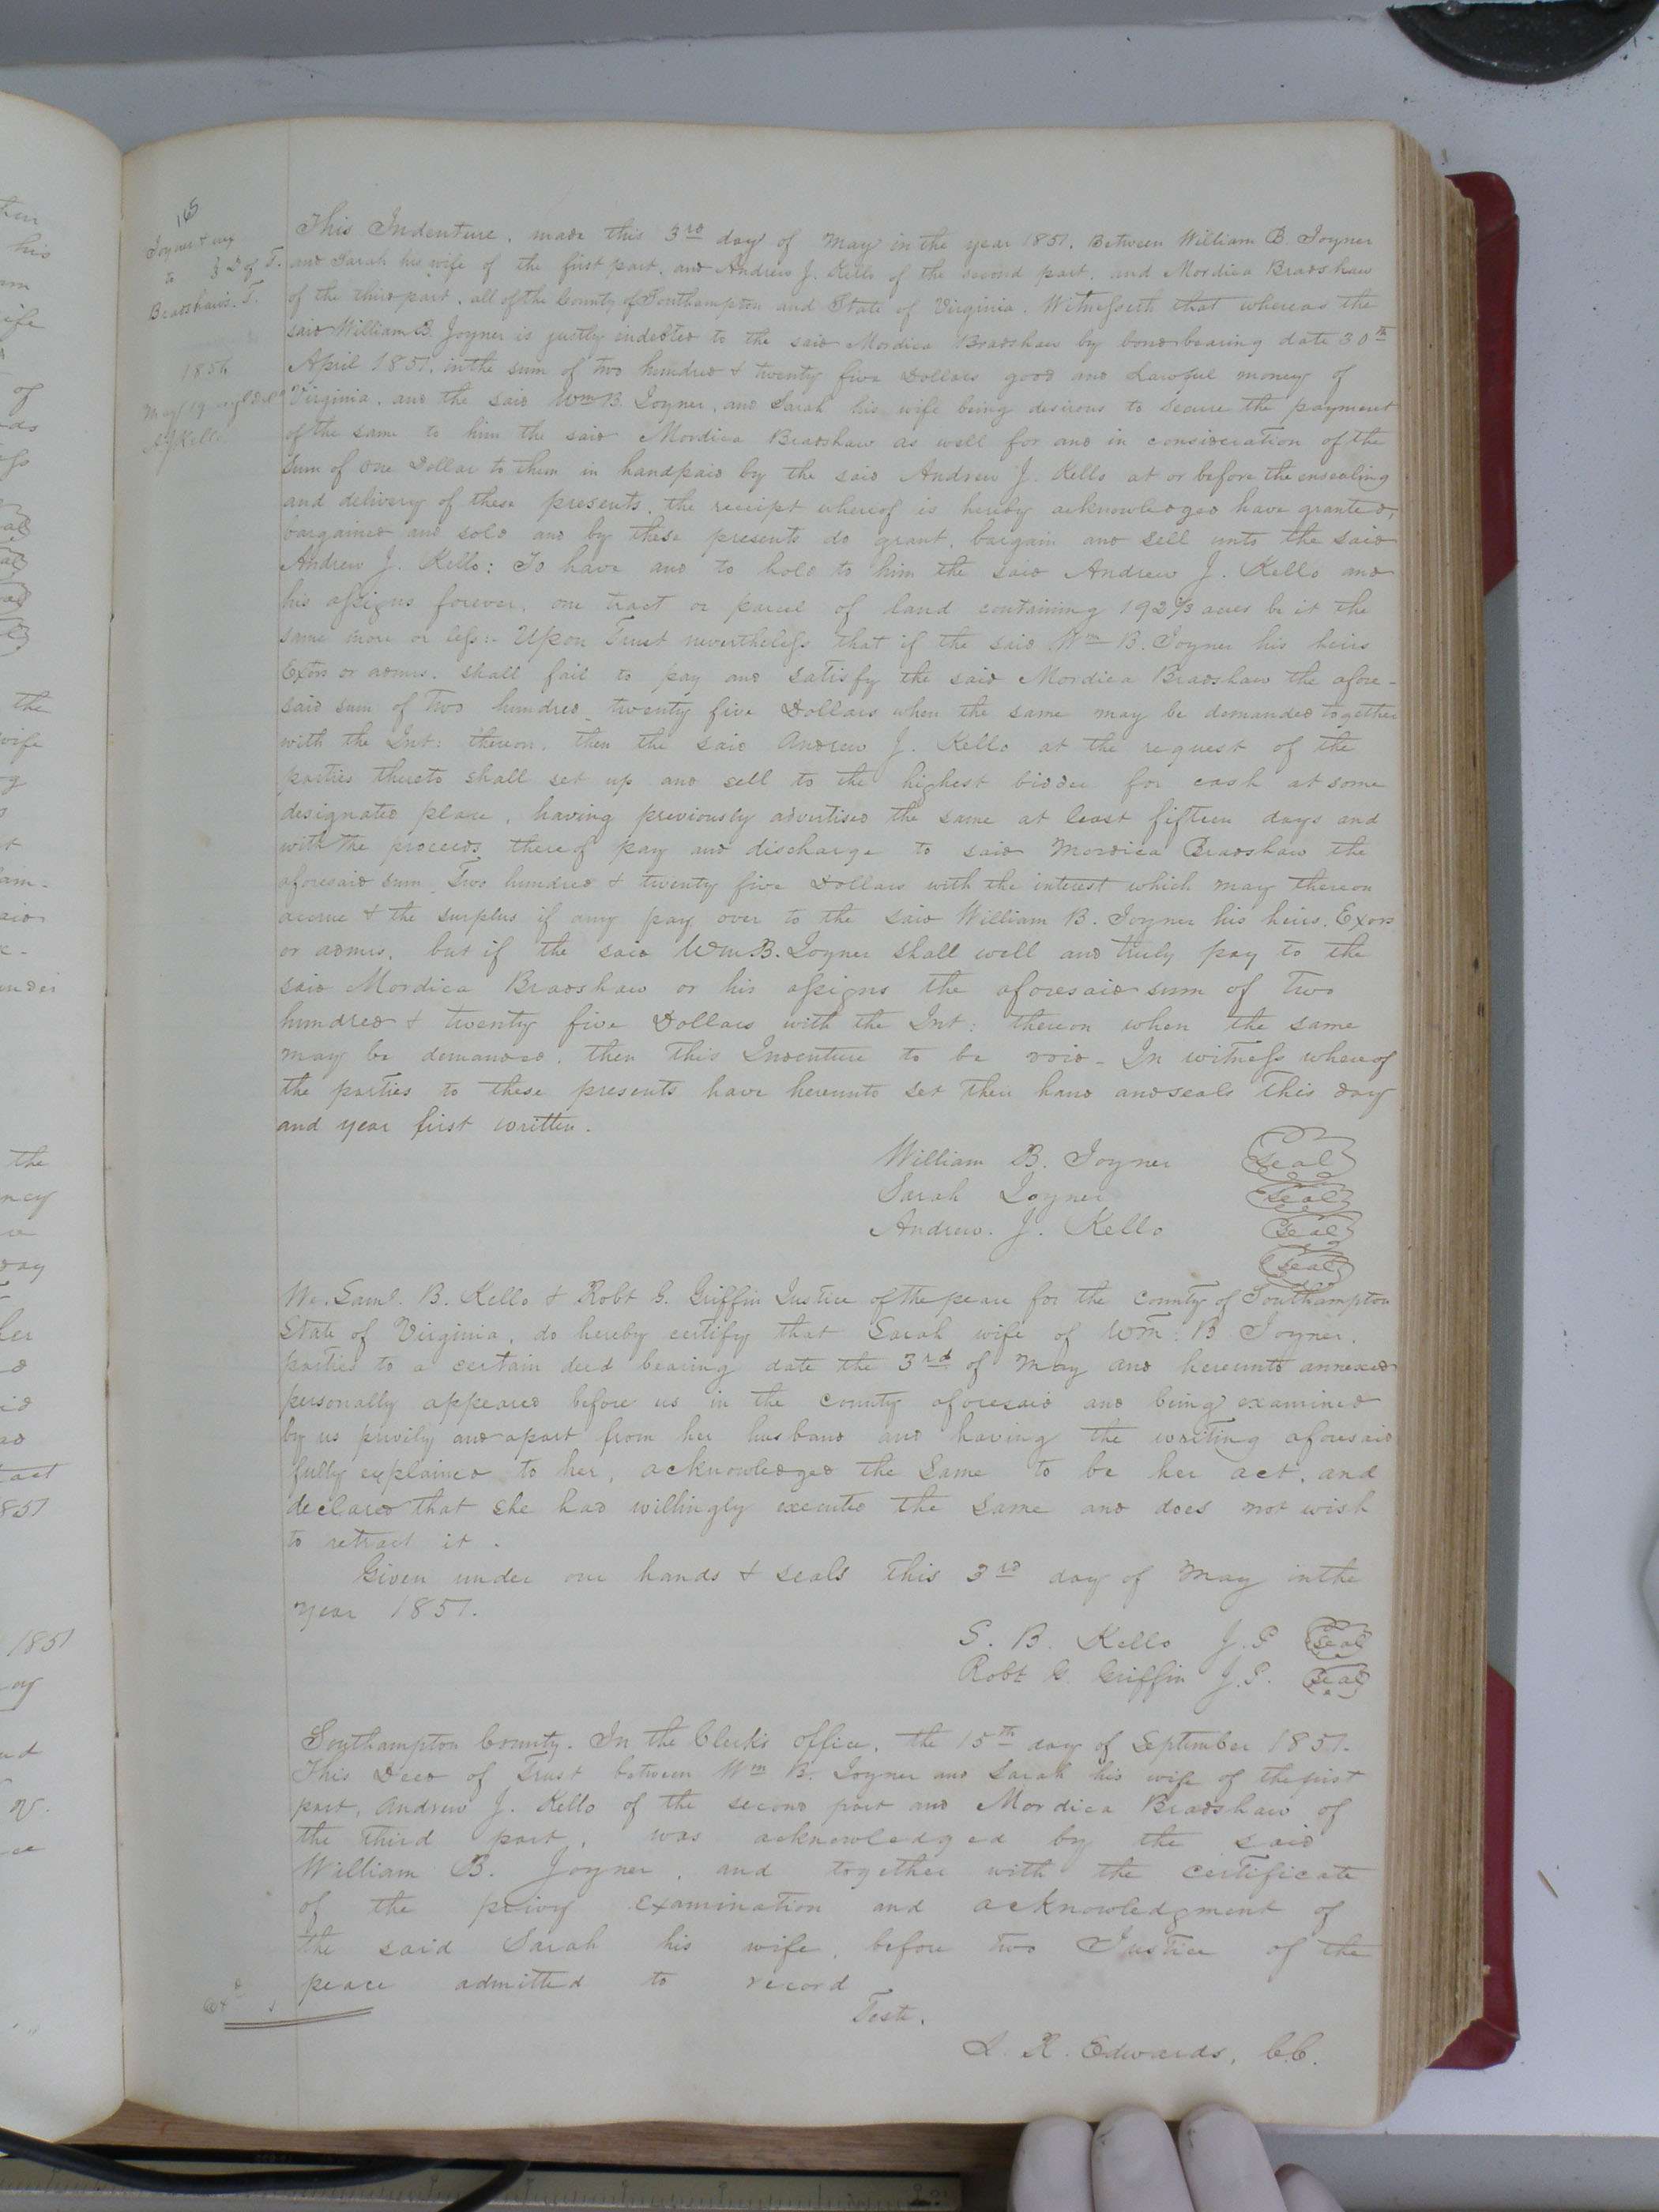 165
Joyner & ux
to } D of T.
Bradshaw's T.
1856
May 19
A J Kello
This Indenture, made this 3rd day of May in the year 1851. Between William B. Joyner
and Sarah his wife of the first part, and Andrew J. Kello of the second part, and Mordica Bradshaw
of the third part, all of the County of Southampton and State of Virginia. Witnesseth that whereas the
said William B. Joyner is justly indebted to the said Mordica Bradshaw by bond bearing date 30th
April 1851, in the sum of two hundred & twenty five Dollars good and Lawful money of
Virginia, and the said Wm B. Joyner, and Sarah his wife being desirous to secure the payment
of the same to him the said Mordica Bradshaw as well for and in consideration of the
Sum of One Dollar to them in hand paid by the said Andrew J. Kello at or before the ensealing
and delivery of these presents, the receipt whereof is hereby acknowledged have granted,
bargained and sold and by these presents do grant, bargain and sell unto the said
Andrew J. Kello: To have and to hold to him the said Andrew J. Kello and
his assigns forever, one tract or parcel of land containing 192 2/3 acres be it the
same more or less:- Upon Trust nevertheless that if the said Wm B. Joyner his heirs
Exors or admrs. shall fail to pay and satisfy the said Mordica Bradshaw the afore-
said sum of Two hundred twenty five Dollars when the same may be demanded together
with the Int: thereon, then the said Andrew J. Kello at the request of the
parties thereto shall set up and sell to the highest bidder for cash at some
designated place, having previously advertised the same at least fifteen days and
with the proceeds thereof pay and discharge to said Mordica Bradshaw the
aforesaid sum Two hundred & twenty five Dollars with the interest which may thereon
accrue & the surplus if any pay over to the said William B. Joyner his heirs, Exors
or admrs, but if the said Wm B. Joyner shall well and truly pay to the
said Mordica Bradshaw or his assigns the aforesaid sum of Two
hundred & twenty five Dollars with the Int: thereon when the same
may be demanded, then this Indenture to be void - In witness whereof
the parties to these presents have hereunto set their hand and seals this day
and year first written.
William B. Joyner Seal
Sarah Joyner Seal
Andrew. J. Kello Seal
Seal
We, Saml. B. Kello & Robt G. Griffin Justice of the peace for the County of Southampton
State of Virginia, do hereby certify that Sarah wife of Wm: B Joyner,
parties to a certain deed bearing date the 3rd of May and hereunto annexed
personally appeared before us in the county aforesaid and being examined
by us privily and apart from her husband and having the writing aforesaid
fully explained to her, acknowledged the Same to be her act, and
declared that she had willingly executed the Same and does not wish
to retract it.
Given under our hands & seals this 3rd day of May in the
year 1851.
S. B. Kello J. P Seal
Robt G. Griffin J. P. Seal
Southampton County. In the Clerk's office, the 15th day of September 1851.
This Deed of Trust between Wm B. Joyner and Sarah his wife of the first
part, Andrew J. Kello of the second part and Mordica Bradshaw of
the third part, was acknowledged by the said
William B. Joyner, and together with the certificate
of the privy examination and acknowledgment of
the said Sarah his wife, before two Justice of the
peace admitted to record
Teste,
L. R. Edwards, C.C.